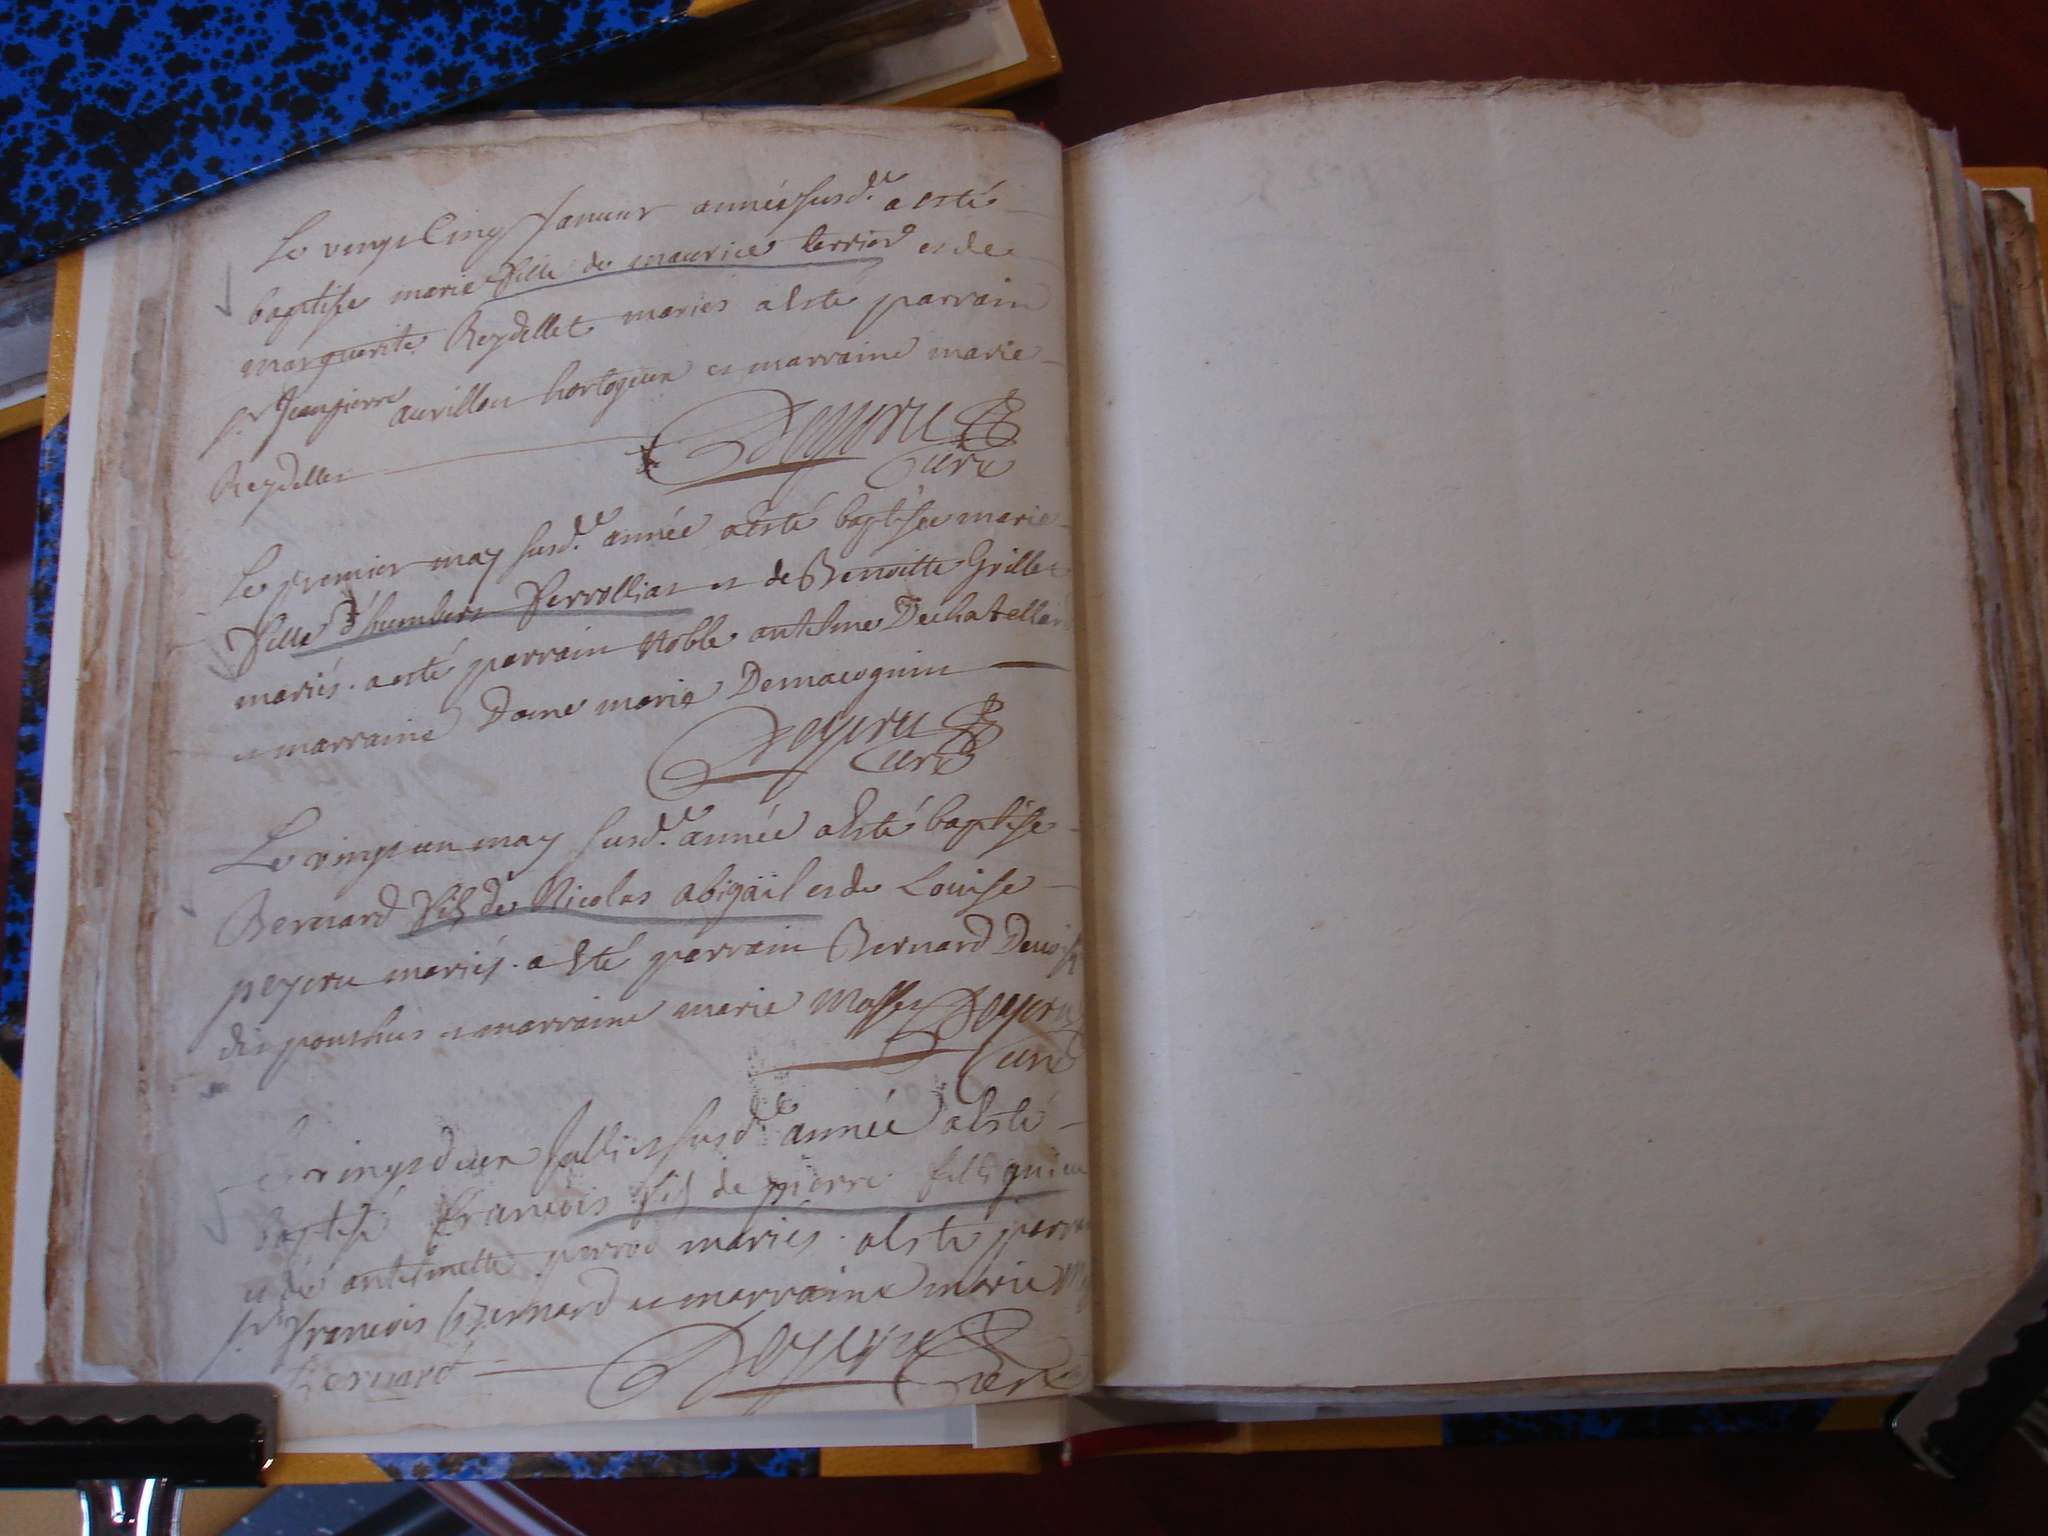 Le vingt Cinq Januier année susd.e a esté
baptise marie fille de maurice terrier et de
marguerite Reydellet mariés a esté parrain
sr Jean pierre aurillon horlogeur et marraine marie
Reydellet
Peyeru
Curé
Le premier may susd.e année a esté baptisee marie
fille d'humbert Perrollias et de Benoitte Grillet
mariés. a esté parrain Noble antelme Dechatellard
et marraine Dame marie Demacognin
Peyeru
Curé
Le vingt un may susd.e année a esté baptise
Bernard fils de Nicolas abigaïl et de Louise
peyeru mariés. a esté parrain Bernard
dit ponthus et marraine marie Peyeru
Curé
Le vingt deux Juillet susd.e année a esté
baptisé francois fils de pierre
et de antelmette perrod mariés. a esté parrain
sr francois Bernard et marraine marie
Bernard
Peyeru
Curé